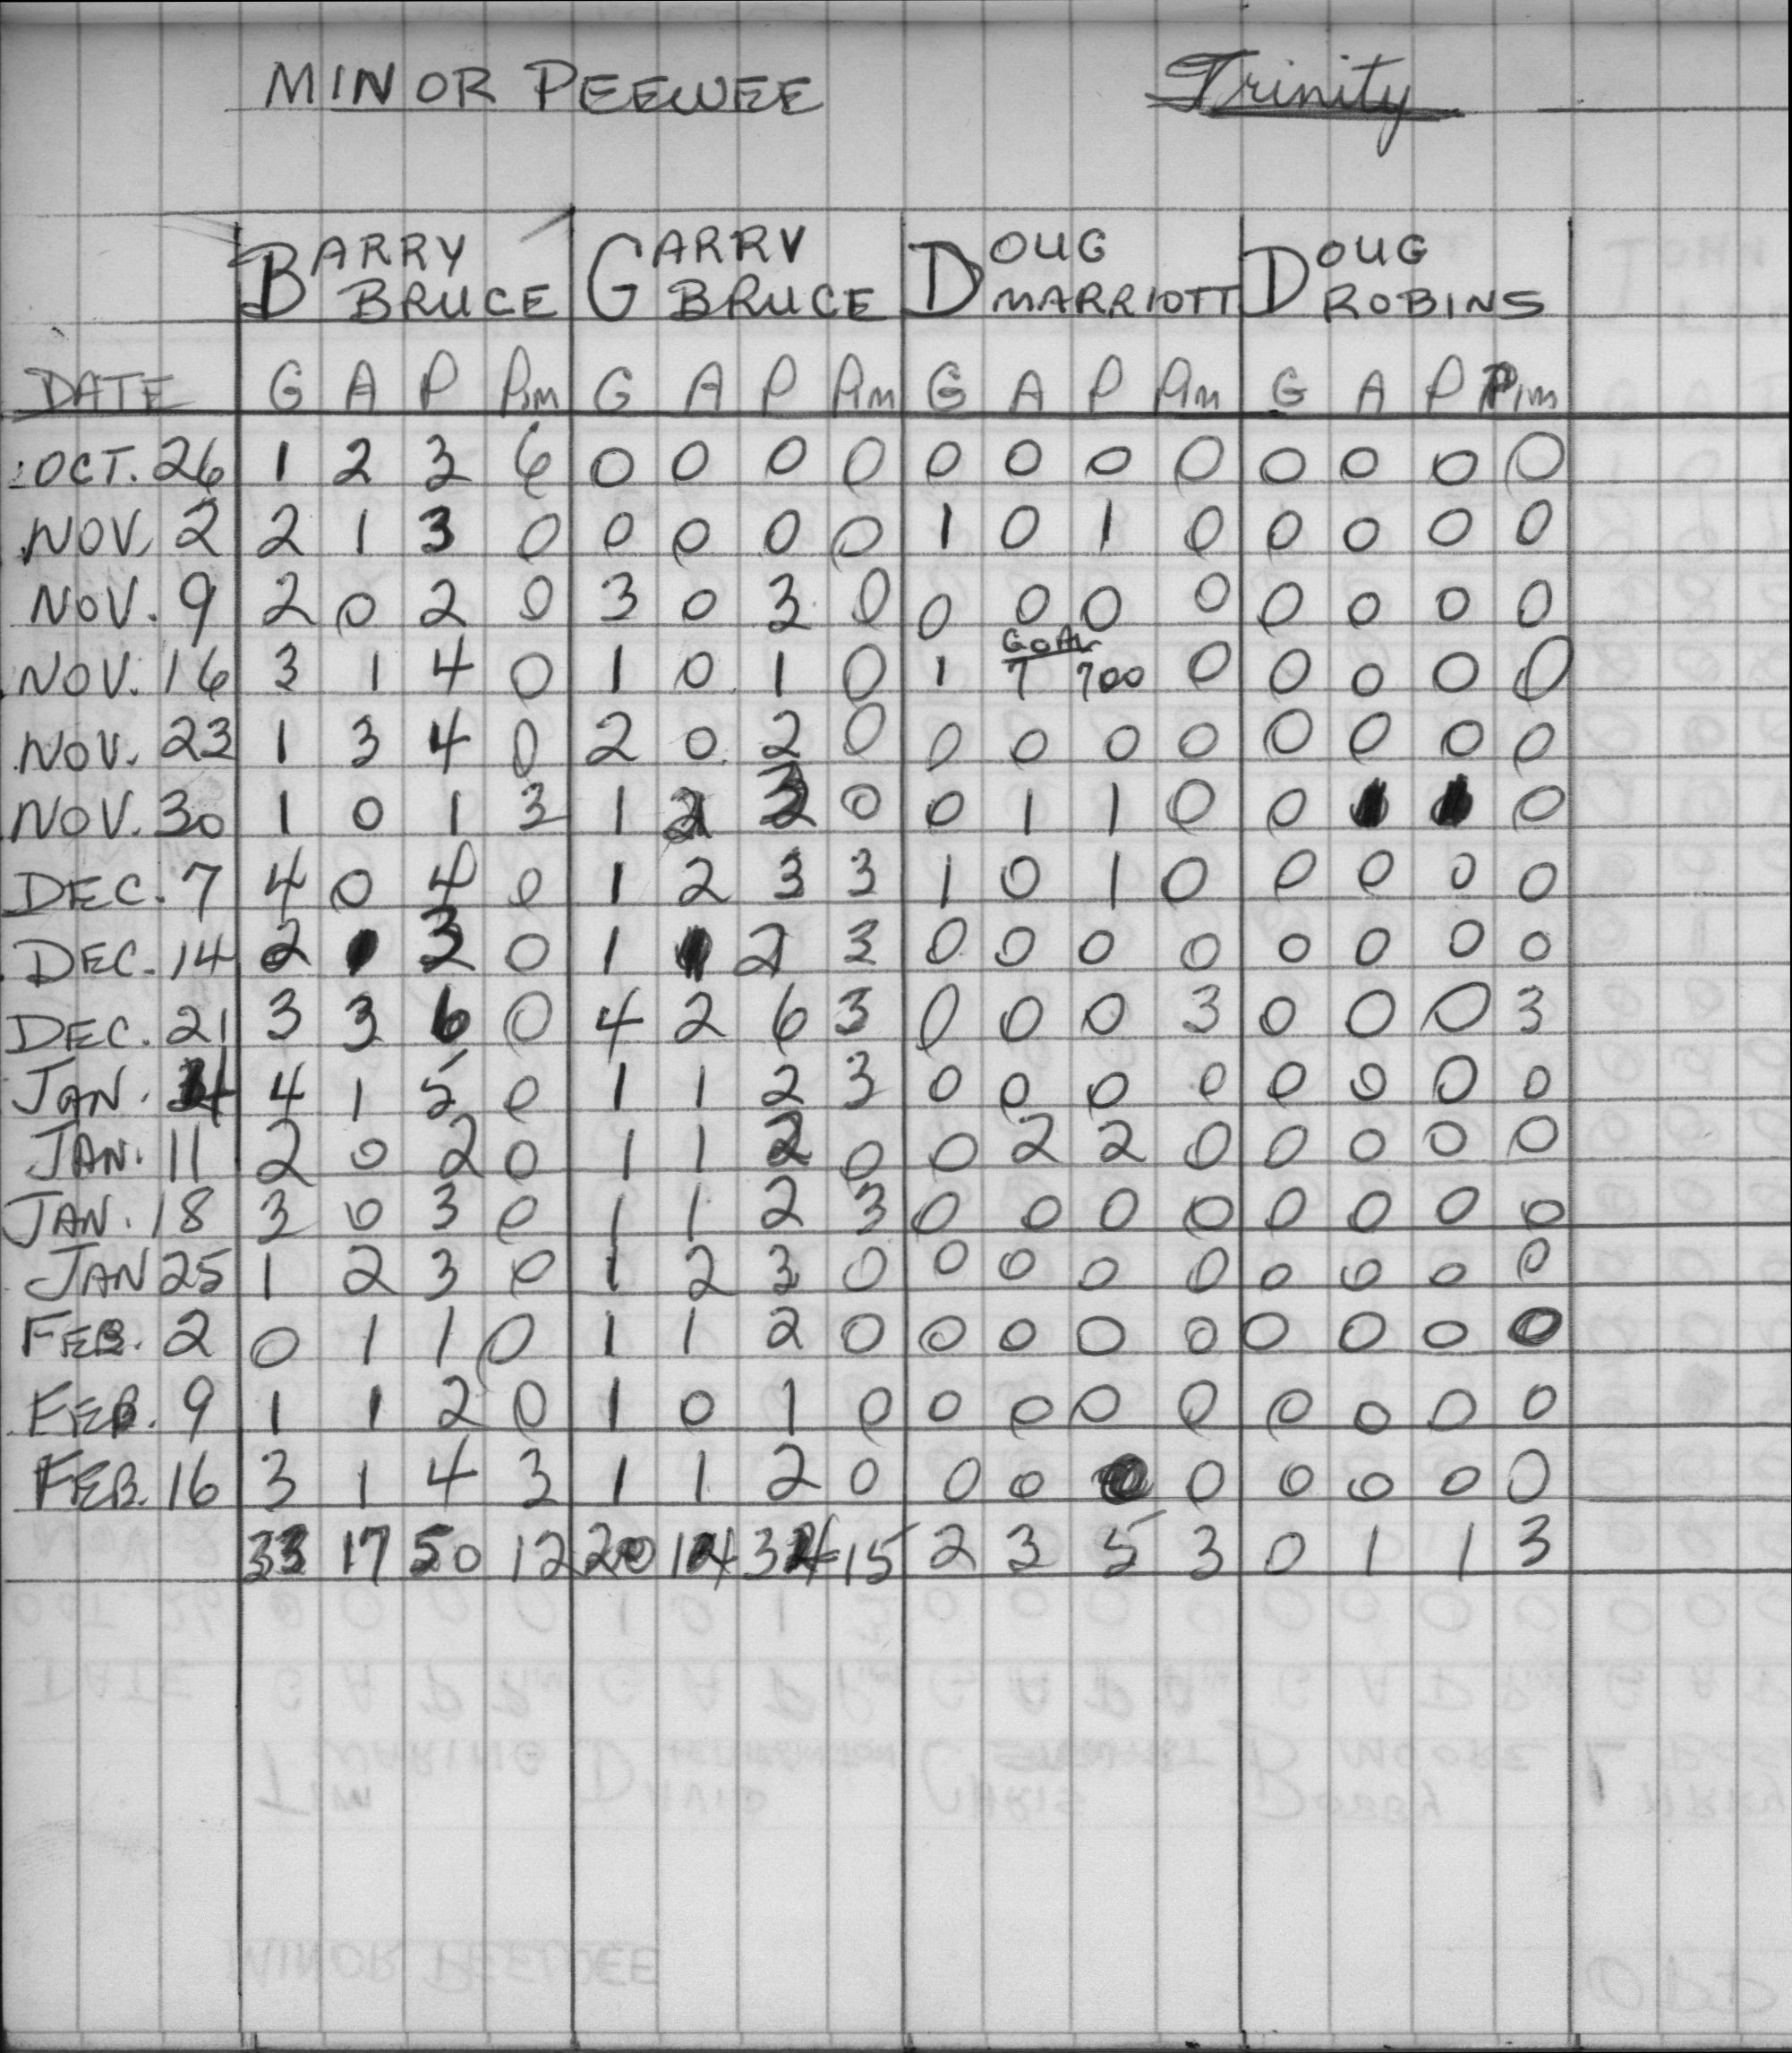 MINOR PEEWEE Trinity
BARRY BRUCE GARRY BRUCE DOUG MARRIOTT DOUG ROBINS
DATE G A P Pim G A P Pim G A P Pim G A P Pim
OCT. 26 1 2 3 6 0 0 0 0 0 0 0 0 0 0 0 0
NOV. 2 2 1 3 0 0 0 0 0 1 0 1 0 0 0 0 0
NOV. 9 2 0 2 0 3 0 3 0 0 0 0 0 0 0 0 0
GOAL
NOV. 16 3 1 4 0 1 0 1 0 1 7 700 0 0 0 0 0
NOV. 23 1 3 4 0 2 0 2 0 0 0 0 0 0 0 0 0
NOV. 30 1 0 1 3 1 2 3 0 0 1 1 0 0 1 1 0
DEC. 7 4 0 4 0 1 2 3 3 1 0 1 0 0 0 0 0
DEC. 14 2 1 3 0 1 1 2 3 0 0 0 0 0 0 0 0
DEC. 21 3 3 6 0 4 2 6 3 0 0 0 3 0 0 0 3
JAN. 4 4 1 5 0 1 1 2 3 0 0 0 0 0 0 0 0
JAN. 11 2 0 2 0 1 1 2 0 0 2 2 0 0 0 0 0
JAN. 18 3 0 3 0 1 1 2 3 0 0 0 0 0 0 0 0
JAN 25 1 2 3 0 1 2 3 0 0 0 0 0 0 0 0 0
FEB. 2 0 1 1 0 1 1 2 0 0 0 0 0 0 0 0 0
FEB. 9 1 1 2 0 1 0 1 0 0 0 0 0 0 0 0 0
FEB. 16 3 1 4 3 1 1 2 0 0 0 0 0 0 0 0
33 17 50 12 20 14 34 15 2 3 5 3 0 1 1 3